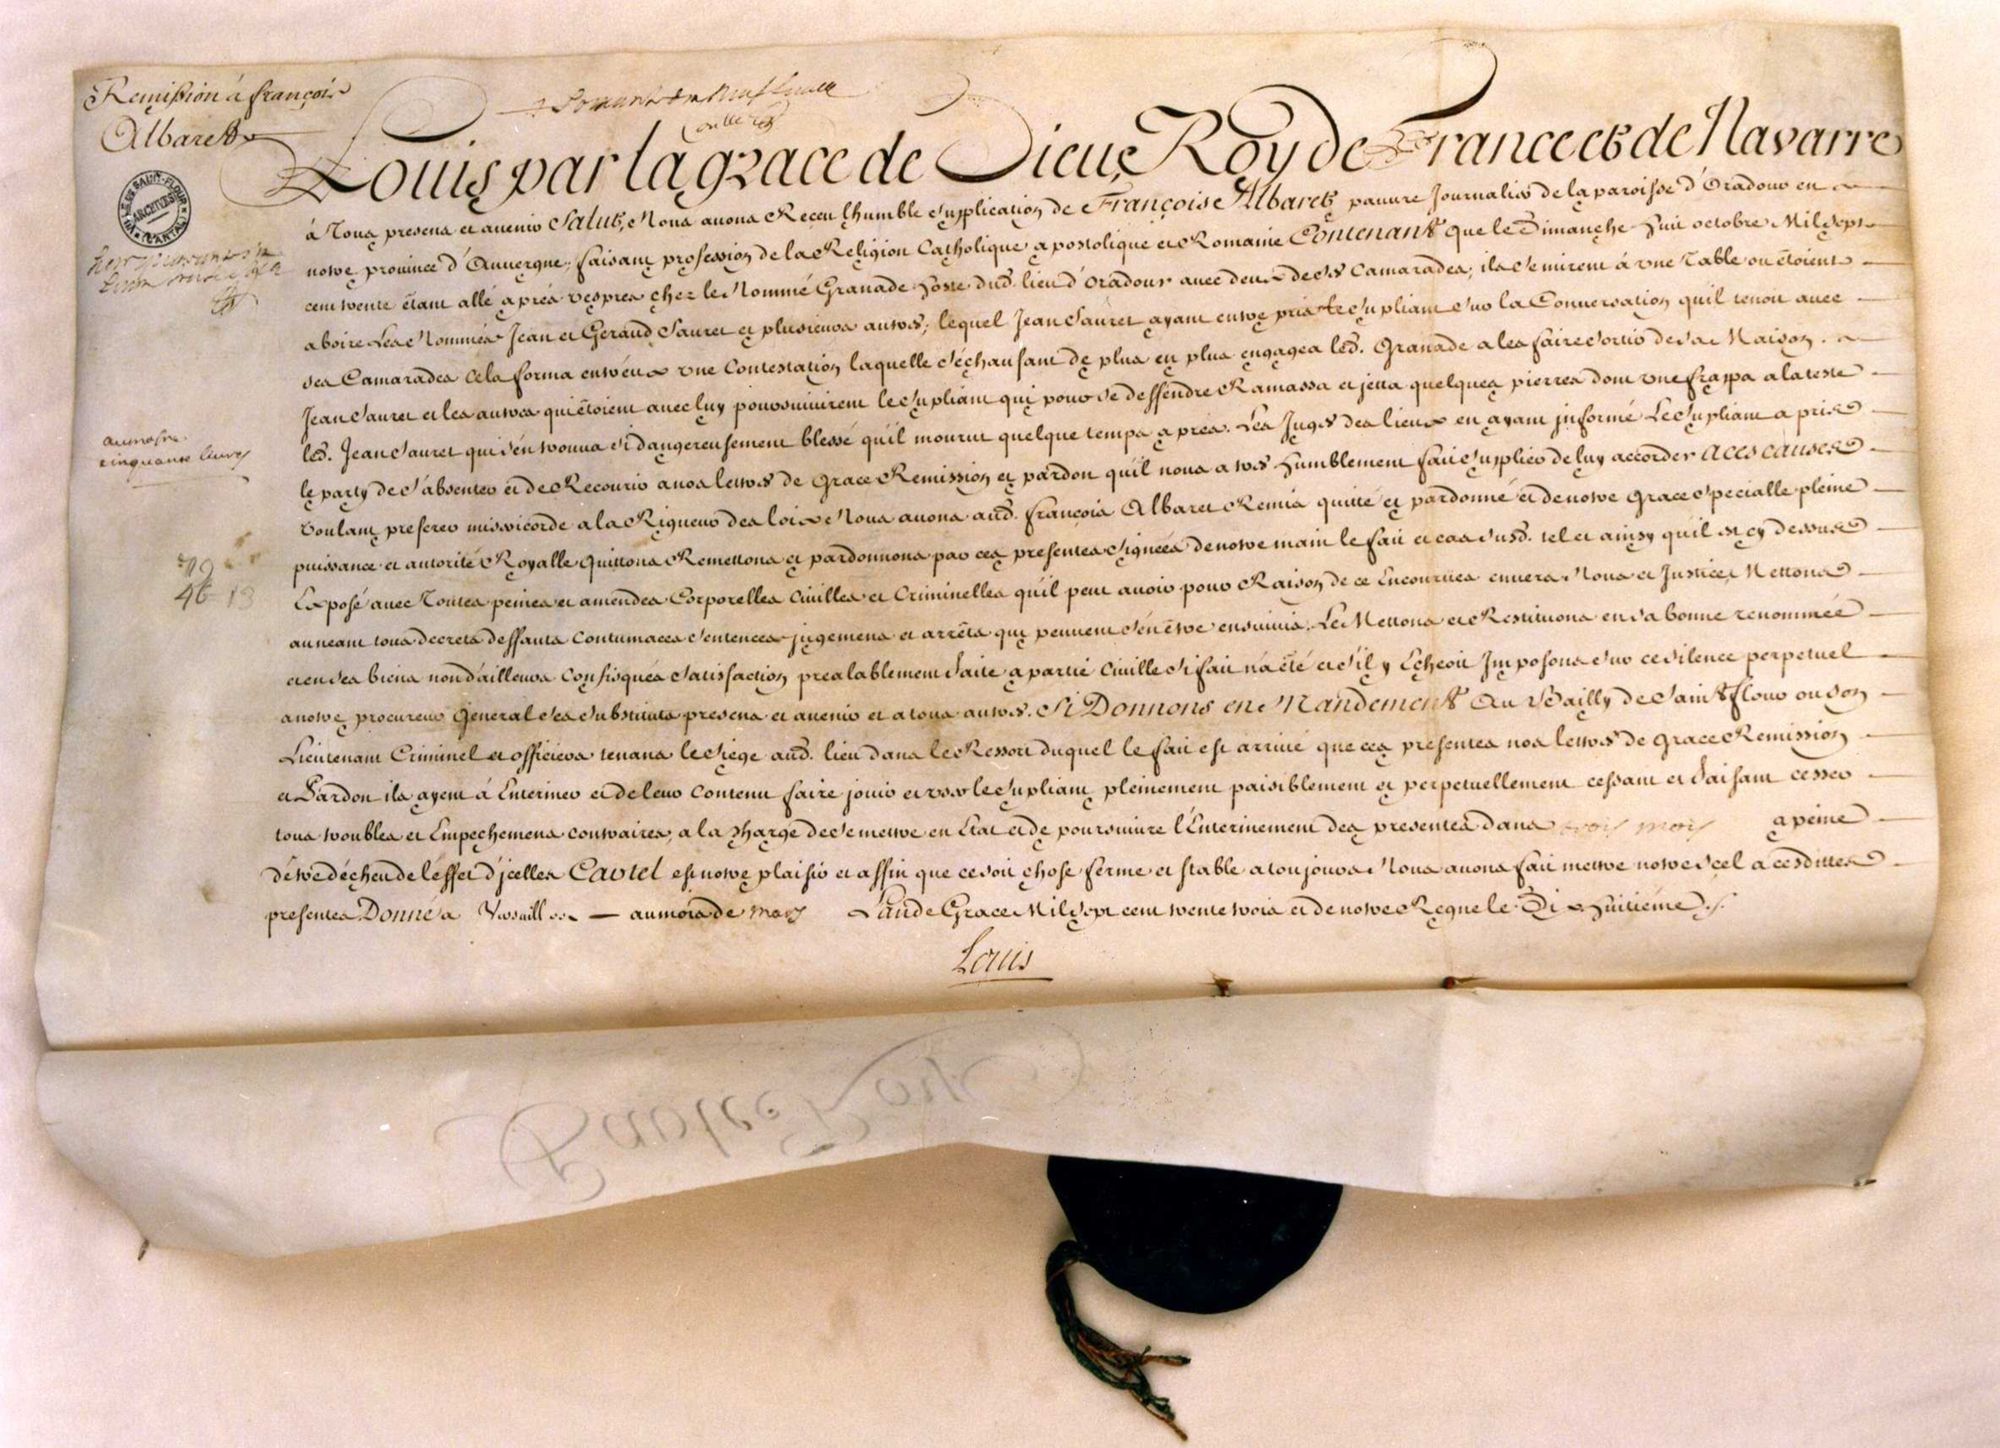 Remission à françois
Albaret
Louis par la grace de Dieu, Roy de France et de Navarre
VILLE DE SAINT-FLOUR
ARCHIVES
CANTAL
à Tous presens et avenir Salut, Nous avons Receu l'humble suplication de François Albaret pauvre Journalier de la paroisse d'Oradour en
notre province d'Auvergne, faisant profession de la Religion Catholique apostolique et Romaine Contenant que le Dimanche huit octobre Mil sept
cent trente étant allé aprés vespres chez le Nommé Granade hoste dud. lieu d'Oradour avec deux de ses Camarades, ils se mirent à une Table ou étoient
a boire Les Nommés Jean et Geraud Sauret et plusieurs autres, lequel Jean Sauret ayant entrepris le supliant sur la Conversation quil tenoit avec
ses Camarades cela forma entr'eux une Contestation laquelle s'échaufant de plus en plus engagea led. Granade a les faire sortir de sa Maison.
Jean Sauret et les autres qui étoient avec luy poursuivirent le supliant qui pour se deffendre Ramassa et jetta quelques pierres dont une frappa a la teste
led. Jean Sauret qui s'en trouva si dangereusement blessé qu'il mourut quelque temps aprés. Les Juges des lieux en ayant informé Le supliant a pris
le party de s'absenter et de Recourir a nos lettres de Grace Remission et pardon qu'il nous a tres humblement fait suplier de luy accorder A ces causes
Voulant preferer misericorde a la Rigueur des loix Nous avons aud. françois Albaret Remis quitté et pardonné et de notre Grace specialle pleine
puissance et autorité Royalle quittons Remettons et pardonnons par ces presentes signées de notre main le fait et cas susd. tel et ainsy quil est cy dessus
Exposé avec Toutes peines et amendes Corporelles Civilles et Criminelles qu'il peut avoir pour Raison de ce Encourues envers Nous et Justice Mettons
au neant tous decrets deffauts contumaces sentences jugemens et arrêts qui peuvent s'en être ensuivis, Le Mettons et Restituons en sa bonne renommée
et en ses biens non d'ailleurs confisqués satisfaction prealablement faite a partie civille si fait n'a été et s'il y Echeoit Imposons sur ce silence perpetuel
a notre procureur General ses substituts presens et avenir et a tous autres. Si Donnons en Mandement Au Bailly de Saint flour ou son
Lieutenant Criminel et officiers tenans le siege aud. lieu dans le Ressort duquel le fait est arrivé que ces presentes nos lettres de grace Remission
et Pardon ils ayent à Enteriner et de leur contenu faire jouir et user le supliant pleinement paisiblement et perpetuellement cessant et faisant cesser
tous troubles et Empechemens contraires, a la charge de se mettre en Etat et de poursuivre l'Enterinement des presentes dans trois mois a peine
d'être déchu de l'effet d'jcelles Car tel est notre plaisir et affin que ce soit chose ferme et stable a toujours Nous avons fait mettre notre scel a cesdittes
presentes Donné a Versailles au mois de mars L'an de Grace Mil sept cent trente trois et de notre Regne le Dix huitiéme
aumosne
cinquante livres
79
46 13
Louis
Par le Roy